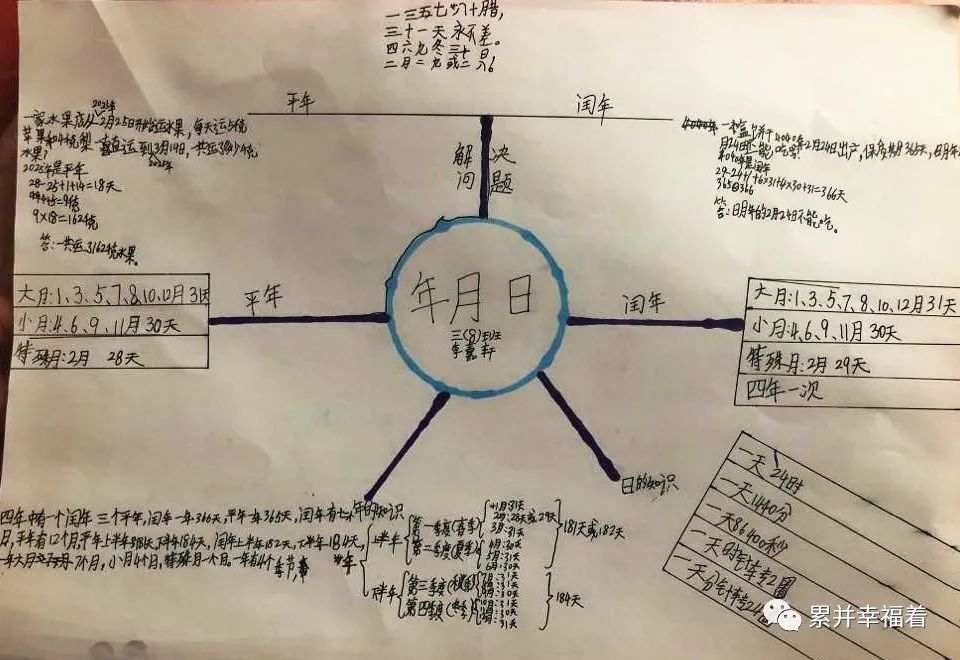 一三五七八十腊,
三十一天永不差。
四六九冬三十日
二月二九或二八
平年
闰年
2025年
一家水果店从2月25日开始运水果,每天运5千克
苹果和4千克梨一直运到3月14日,共运了多少千克
水果?
2025年是平年
28-25+1+14=18天
9×18=162千克
答:一共运了162千克水果。
4040年2月24日出产,保质期365天,
4040年是闰年
29-24+1+6×31+4×30+31=366天
365日366
答:日月年的2月24日不能吃。
解决
问题
年月日
三(8)班
李嘉轩
平年
大月:1、3、5、7、8、10、12月31天
小月:4、6、9、11月30天
特殊月:2月 28天
闰年
大月:1、3、5、7、8、10、12月31天
小月:4、6、9、11月30天
特殊月:2月 29天
四年一次
日的知识
一天24时
一天1440分
一天86400秒
一天时针转2圈
一天分针转24圈
年的知识
四年中有一个闰年 三个平年,闰年一年366天,平年一年365天,闰年有
平年上半年181天,下半年184天,闰年上半年182天,下半年184天,
7个月,小月4个月,特殊月一个月。一年有4个季节
上半年
第一季度(春季)
1月:31天
2月:28天或29天
3月:31天
第二季度(夏季)
4月:30天
5月:31天
6月:30天
181天或182天
下半年
第三季度(秋季)
7月:31天
8月:31天
9月:30天
第四季度(冬季)
10月:31天
11月:30天
12月:31天
184天
累并幸福着